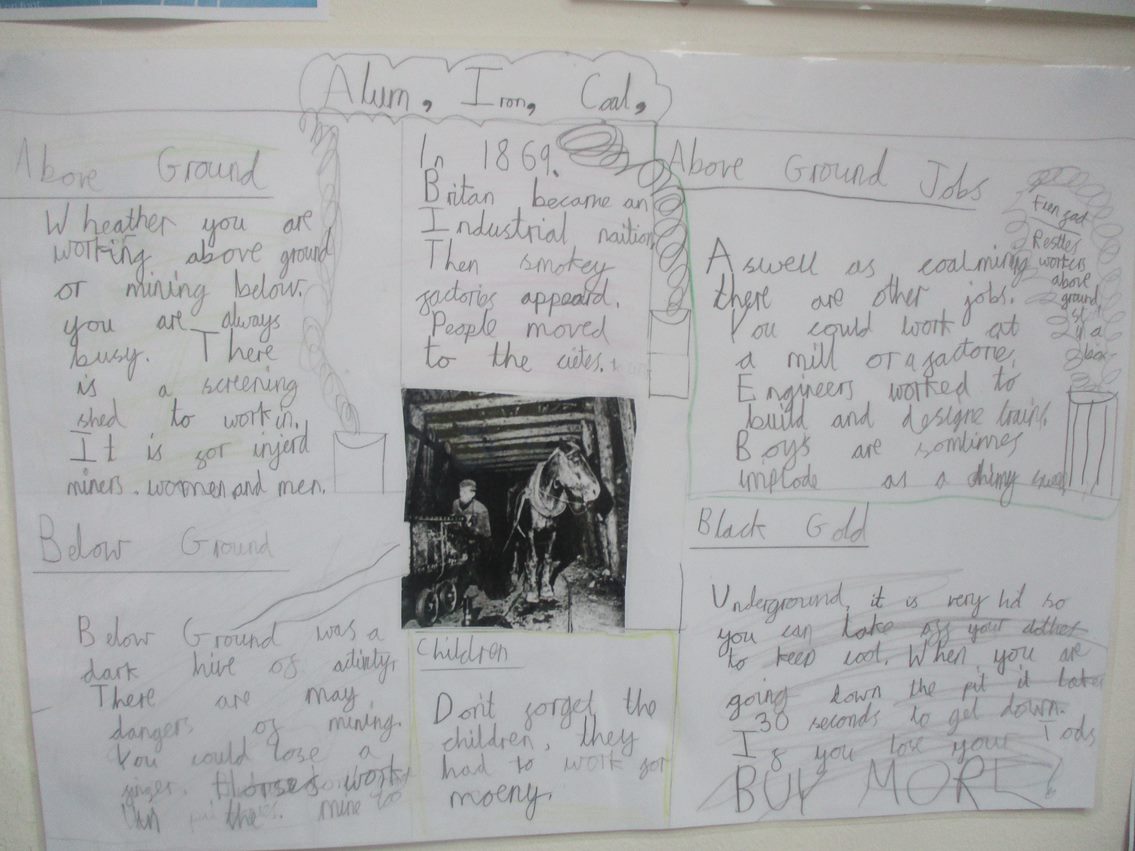 Alum, Iron, Coal,
Above Ground
Wheather you are
working above ground
or mining below.
you are always
busy. There
is a screening
shed to work in.
It is for injerd
miners. women and men.
Below Ground
Below Ground was a
dark hive of activity.
There are may
dangers of mining.
You could lose a
finger. Horses work
in the mine too
In 1869.
Britan became an
Industrial naition
Then smokey
factories appeard.
People moved
to the cietes.
Children
Don't forget the
children, they
had to work for
moeny.
Above Ground Jobs
Aswell as coalmining
there are other jobs.
You could work at
a mill or a factorie.
Engineers worked to
build and designe trains.
Boys are somtimes
implode as a chimy sweep
Fun fact
Restles
workers
above
ground
in a
Black Gold
Underground, it is very hot so
you can take off your clothes
to keep cool. When you are
going down the pit it takes
30 seconds to get down.
If you lose your Tools
BUY MORE